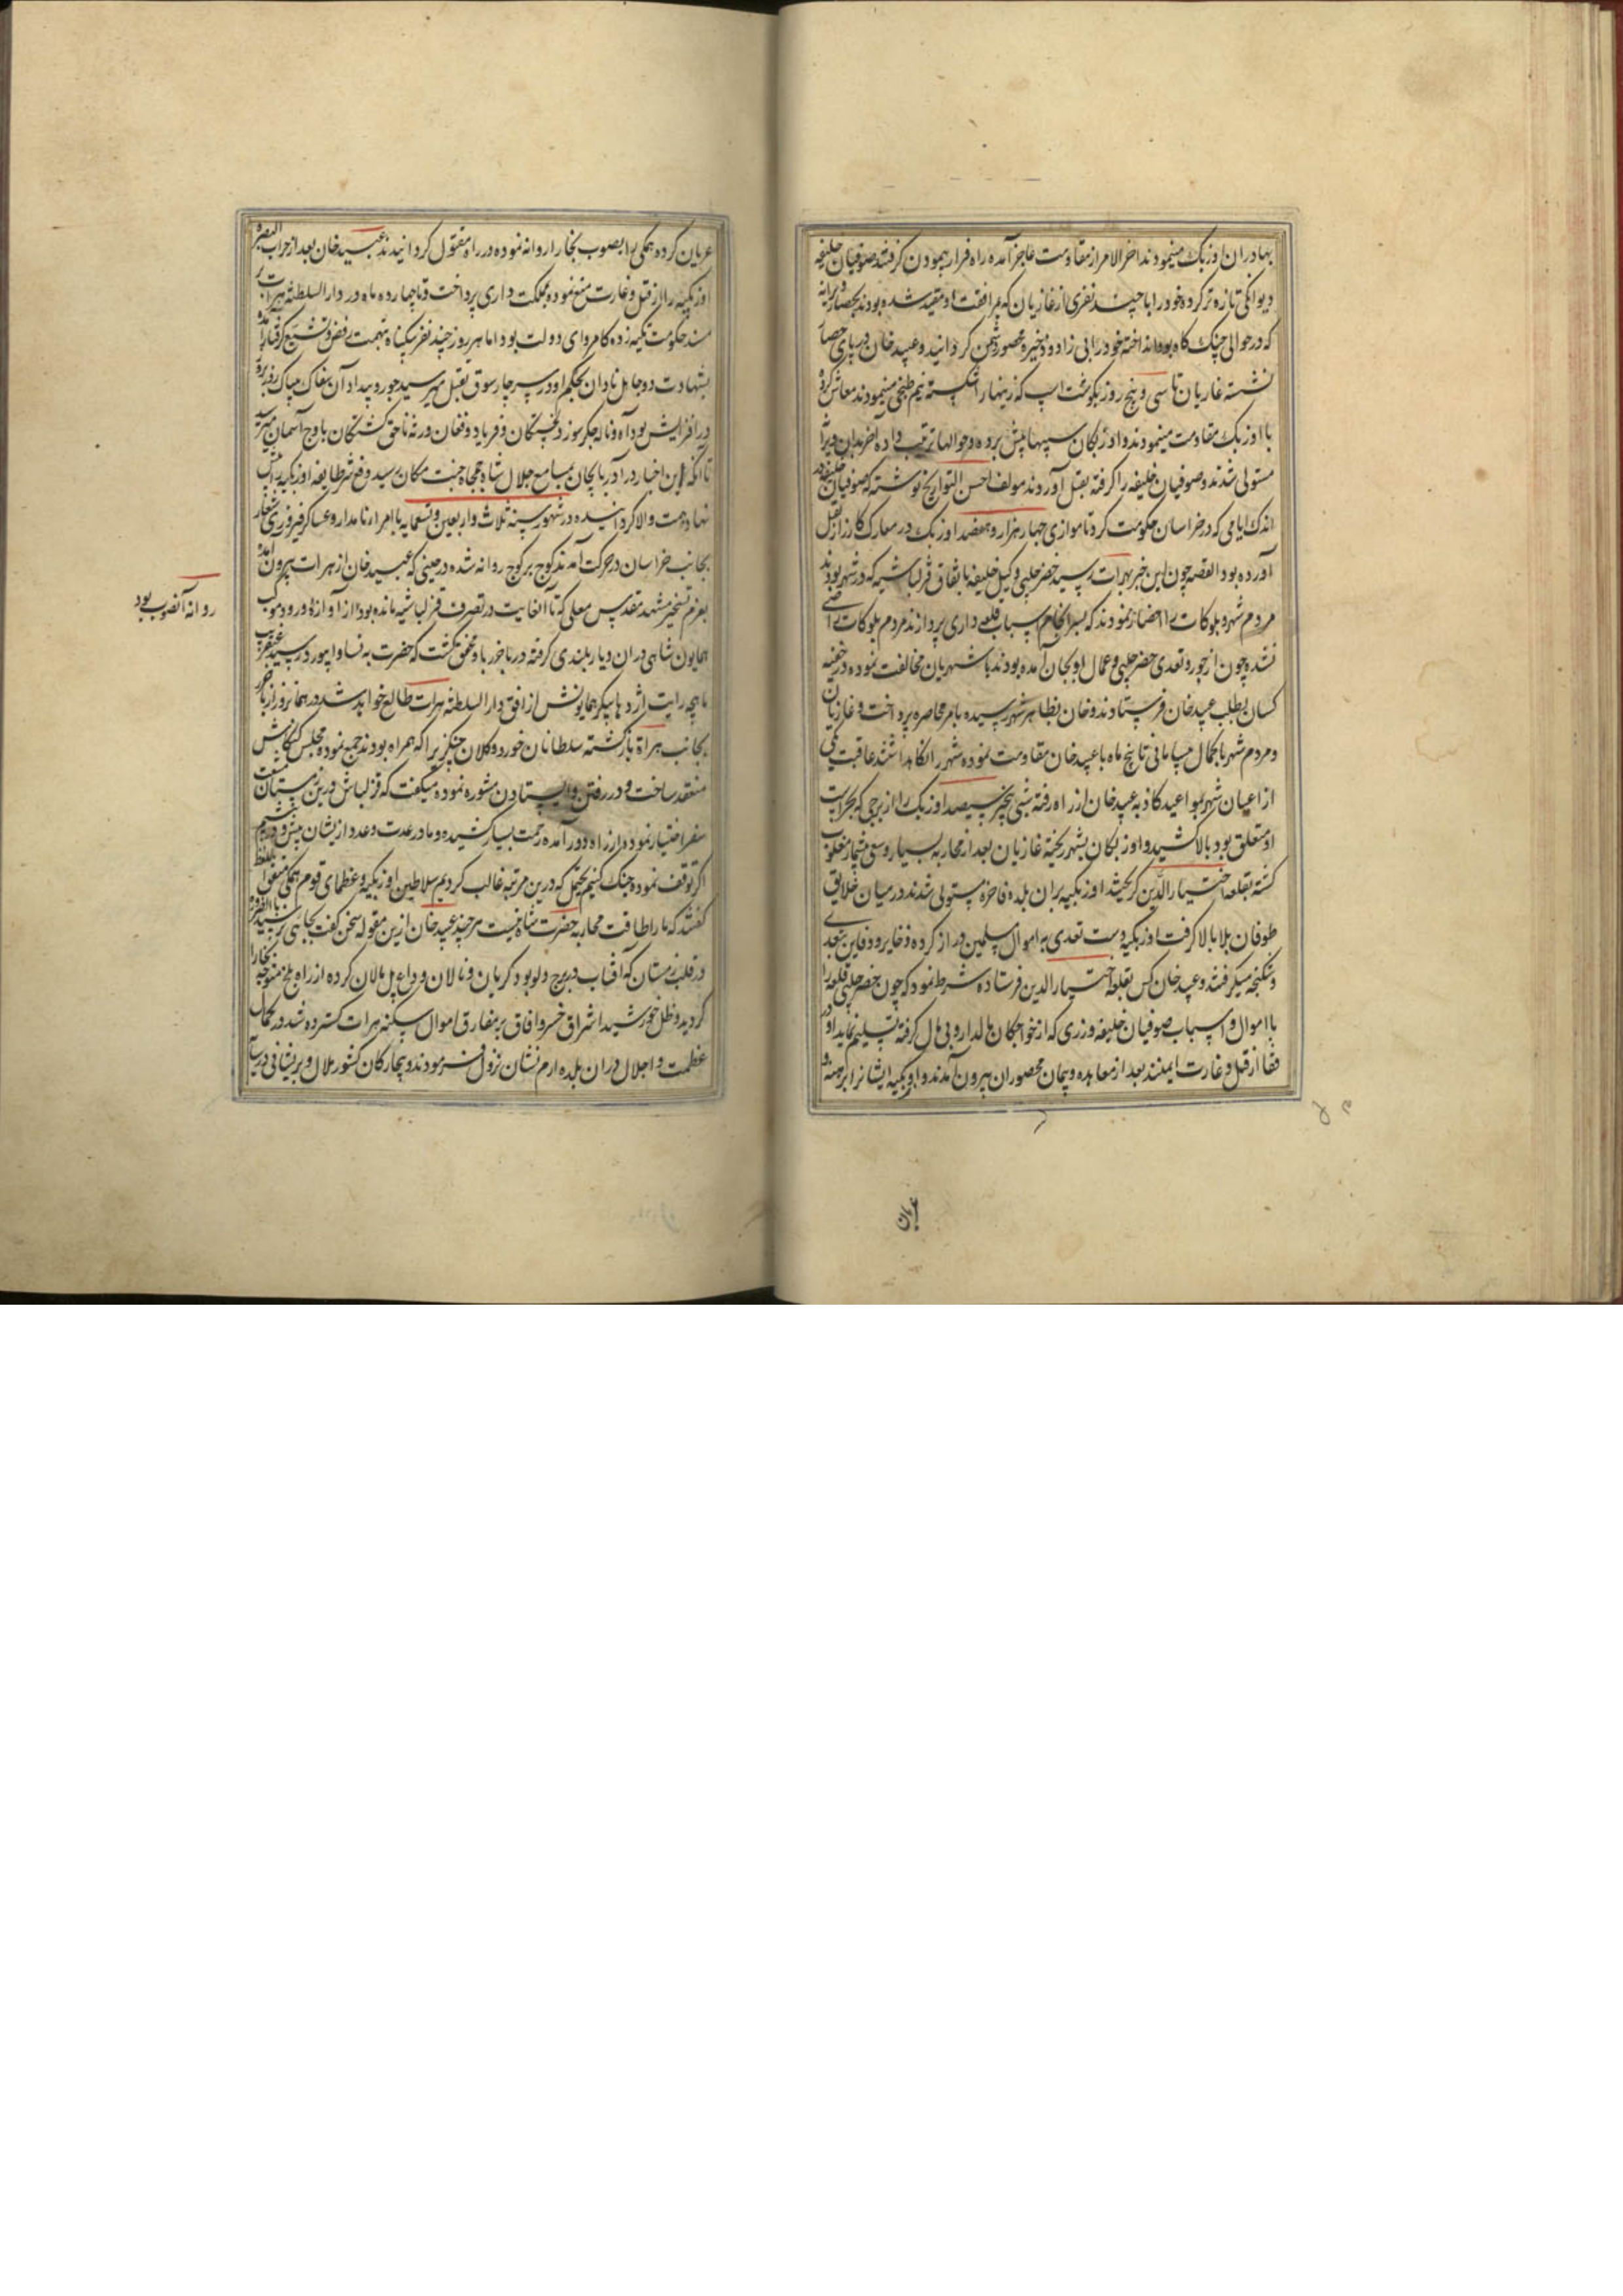 بهادران اوزبک مینمودند اخر الامر از مقاومت عاجز آمده راه فرار پیمودن گرفتند صوفیان خلیفه
دیوانگی تازه تر کرده خود را با چند نفری از غازیان که بمرافقت او مقید شده بودند بحصار ویرانه
که در حوالی جنک کاه بود انداخته خود را بی زاد و ذخیره محصور دشمن کردانید و عبید خان در پای حصار
نشسته غازیان تا سی و پنج روز بکوشت اسپ که زینها را شکسته نیم طبخی مینمودند معاش کرده
با اوزبک مقاومت مینمودند و اوزبکان سیبها پیش برده و حوالها ترتیب داده اخر بدان ویرانه
مستولی شدند و صوفیان خلیفه را کرفته بقتل آوردند مولف احسن التواریخ نوشته که صوفیان خلیفه در
اندک ایامی که در خراسان حکومت کرد تا موازی چهار هزار و هفتصد اوزبک در معارک کارزار بقتل
آورده بود القصه چون این خبر بهرات رسید خضر چلبی وکیل خلیفه باتفاق قزلباشیه که در شهر بودند
مردم شهر و بلوکات را احضار نمودند که بسرانجام اسباب قلعه داری پردازند مردم بلوکات راضی
نشده چون از جور و تعدی خضر چلبی و عمال او بجان آمده بودند با شهریان مخالفت نموده در خفیه
کسان بطلب عبید خان فرستادند و خان بظاهر شهر رسیده بامر محاصره پرداخت و غازیان
و مردم شهر با کمال بیسامانی تا پنج ماه با عبید خان مقاومت نموده شهر را نکاهداشتند عاقبت یکی
از اعیان شهر بمواعید کاذبه عبید خان از راه رفته شبی بیخبر سیصد اوزبک را از برجی که بحراست
او متعلق بود بالا کشید و اوزبکان بشهر ریخته غازیان بعد از محاربه بسیار و سعی بیشمار مغلوب
کشته بقلعه اختیارالدین کریختند اوزبکیه بران بلده فاخره مستولی شدند در میان خلایق
طوفان بلا بالا کرفت اوزبکیه دست تعدی به اموال مسلمین دراز کرده ذخایر و دفاین بتعدی
و شکنجه میکرفتند و عبید خان کس بقلعه اختیارالدین فرستاده شرط نمود که چون خضر چلبی قلعه را
با اموال و اسباب صوفیان خلیفه و زری که از خواجکان مالدار و بی مال کرفته تسلیم نماید او و
رفقا از قتل و غارت ایمنند بعد از معاهده و پیمان محصوران بیرون آمدند و اوزبکیه ایشانرا برهنه و
عریان
عریان کرده همکی را بصوب بخارا روانه نموده در راه مقتول کردانیدند عبید خان بعد از خراب البصره
اوزبکیه را از قتل و غارت منع نموده بمملکت داری پرداخت و تا چهارده ماه در دار السلطنه هرات بر
مسند حکومت تکیه زده کامروای دولت بود اما هر روز چند نفر بیکناه بتهمت رفض و تشیع کرفتار آمده
بشهادت دو جاهل نادان بحکم او در سر چارسوق بقتل میرسید جور و بیداد آن سفاک بیباک روز بروز
در افزایش بود آه و ناله جکرسوز دلخستکان و فریاد و فغان ورثه ناحق کشتکان باوج آسمان میرسید
تا آنکه این اخبار در آذربایجان بمسامع جلال شاه جمجاه جنت مکان رسید و دفع شر طایفه اوزبکیه پیش
نهاد همت والا کردانیده در شهور سنه ثلاث و اربعین و تسعمایه با امراء نامدار و عساکر فیروزی شعار
بجانب خراسان در حرکت آمدند کوچ بر کوچ روانه شده در حینی که عبید خان از هرات بیرون آمده
بعزم تسخیر مشهد مقدس معلی که تا آنغایت در تصرف قزلباشیه مانده بود از آوازه ورود موکب
روانه آنصوب بود
همایون شاهی دران دیار بلندی کرفته در باخرز باو محقق کشت که حضرت به نسا و ابیورد رسید عنقریب
ماهچه رایت اژدها پیکر همایونش از افق دار السلطنه هرات طالع خواهد شد در همانروز از باخرز
بجانب هراة بازکشته سلطانان خورد و کلان چنکیزی را که همراه بودند جمع نموده مجلس کنکاش
منعقد ساخت و در رفتن و ایستادن مشوره نموده میکفت که قزلباش درین زمستان
سفر اختیار نموده از راه دور آمده زحمت بسیار کشیده و ما در عدت و عدد از ایشان بیش و
اکر توقف نموده جنک کنیم یحتمل که درین مرتبه غالب کردیم سلاطین اوزبکیه و عظمای قوم همکی متفق اللفظ
کفتند که ما را طاقت محاربه حضرت شاه نیست هر چند عبید خان ازین مقوله سخن کفت بجایی نرسید بالضروره
در قلب زمستان که افتاب در برج دلو بود کریان و نالان وداع پل مالان کرده از راه بلخ متوجه بخارا
کردید و ظل خورشید اشراق خسرو افاق بر مفارق اموال سکنه هرات کسترده شد و بکمال
عظمت و اجلال دران بلده ارم نشان نزول فرمودند و بیچارکان کشور ملال و پریشانی در سایه